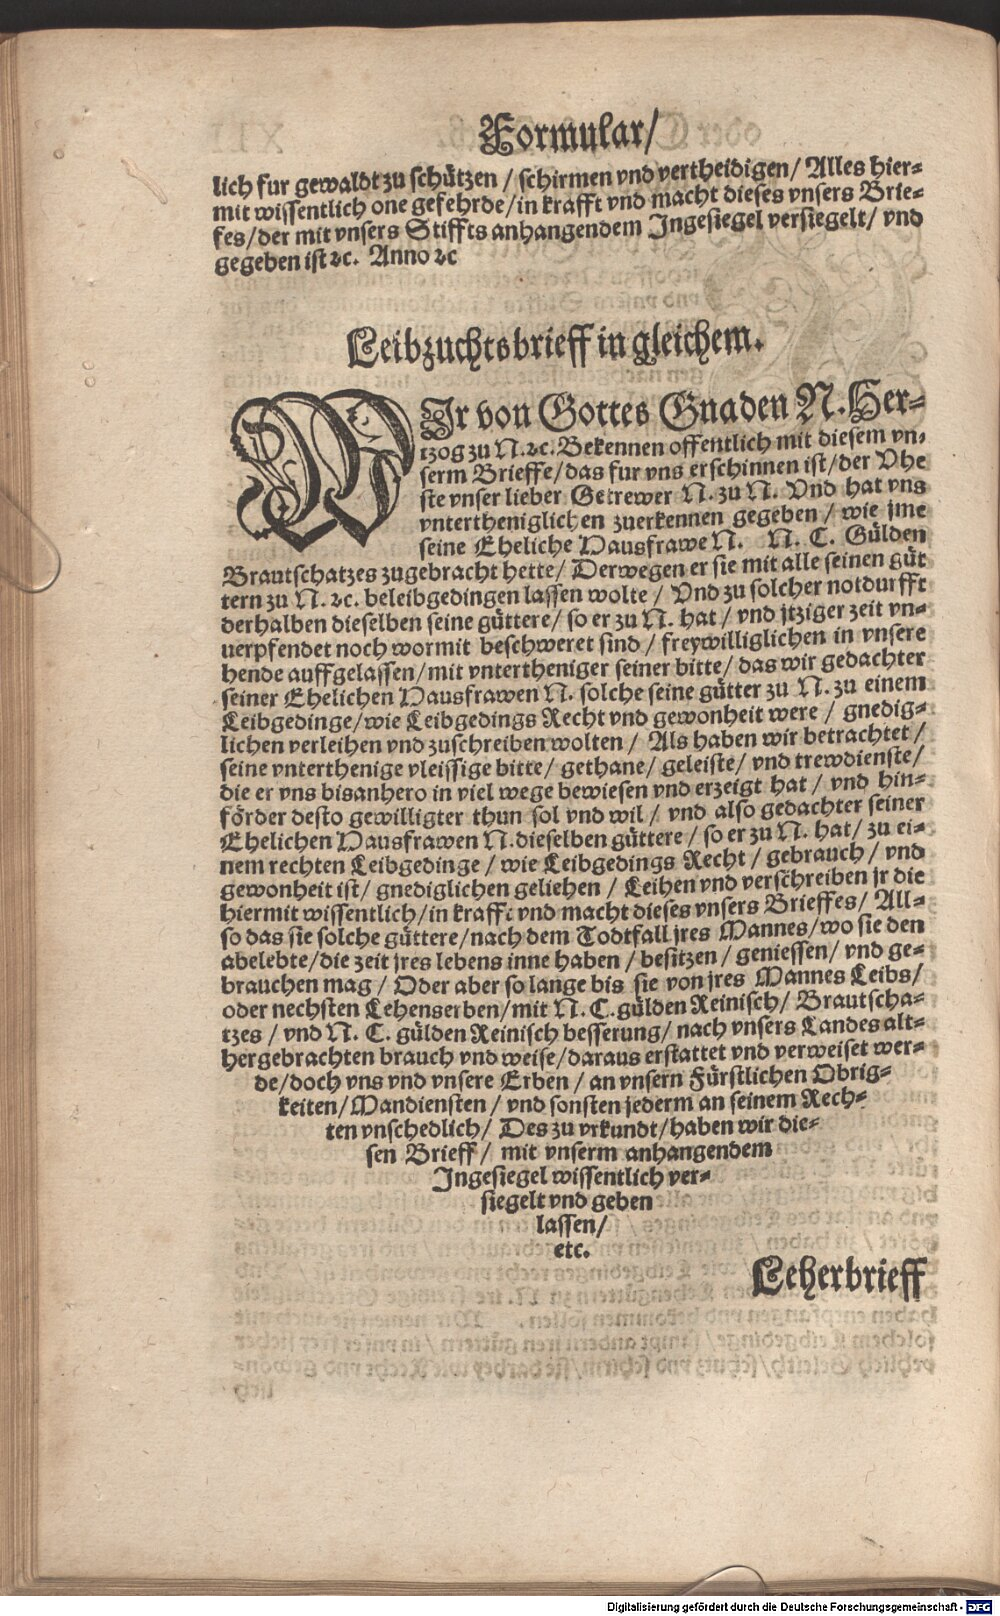 Formular/
lich fur gewaldt zu schützen / schirmen vnd vertheidigen / Alles hier-
mit wissentlich one gefehrde / in krafft vnd macht dieses vnsers Brie-
fes / der mit vnsers Stiffts anhangendem Ingesiegel versiegelt / vnd
gegeben ist ꝛc. Anno ꝛc
Leibzuchtsbrieff in gleichem.
WIr von Gottes Gnaden N. Her-
tzog zu N. ꝛc. Bekennen offentlich mit diesem vn-
serm Brieffe / das fur vns erschinnen ist / der Vhe
ste vnser lieber Getrewer N. zu N. Vnd hat vns
vntertheniglichen zuerkennen gegeben / wie jme
seine Eheliche Hausfrawe N. N. C. Gülden
Brautschatzes zugebracht hette / Derwegen er sie mit alle seinen güt
tern zu N. ꝛc. beleibgedingen lassen wolte / Vnd zu solcher notdurfft
derhalben dieselben seine güttere / so er zu N. hat / vnd jtziger zeit vn-
uerpfendet noch wormit beschweret sind / freywilliglichen in vnsere
hende auffgelassen / mit vntertheniger seiner bitte / das wir gedachter
seiner Ehelichen Hausfrawen N. solche seine gütter zu N. zu einem
Leibgedinge / wie Leibgedings Recht vnd gewonheit were / gnedig-
lichen verleihen vnd zuschreiben wolten / Als haben wir betrachtet /
seine vnterthenige vleissige bitte / gethane / geleiste / vnd trewdienste /
die er vns bisanhero in viel wege bewiesen vnd erzeigt hat / vnd hin-
förder desto gewilligter thun sol vnd wil / vnd also gedachter seiner
Ehelichen Hausfrawen N. dieselben güttere / so er zu N. hat / zu ei-
nem rechten Leibgedinge / wie Leibgedings Recht / gebrauch / vnd
gewonheit ist / gnediglichen geliehen / Leihen vnd verschreiben jr die
hiermit wissentlich / in krafft vnd macht dieses vnsers Brieffes / All-
so das sie solche güttere / nach dem Todtfall jres Mannes / wo sie den
abelebte / die zeit jres lebens inne haben / besitzen / geniessen / vnd ge-
brauchen mag / Oder aber so lange bis sie von jres Mannes Leibs /
oder nechsten Lehenserben / mit N. C. gülden Reinisch / Brautscha-
tzes / vnd N. C. gülden Reinisch besserung / nach vnsers Landes alt-
hergebrachten brauch vnd weise / daraus erstattet vnd verweiset wer-
de / doch vns vnd vnsere Erben / an vnsern Fürstlichen Obrig-
keiten / Mandiensten / vnd sonsten jederm an seinem Rech-
ten vnschedlich / Des zu vrkundt / haben wir die-
sen Brieff / mit vnserm anhangendem
Ingesiegel wissentlich ver-
siegelt vnd geben
lassen /
etc.
Leherbrieff
Digitalisierung gefördert durch die Deutsche Forschungsgemeinschaft - DFG